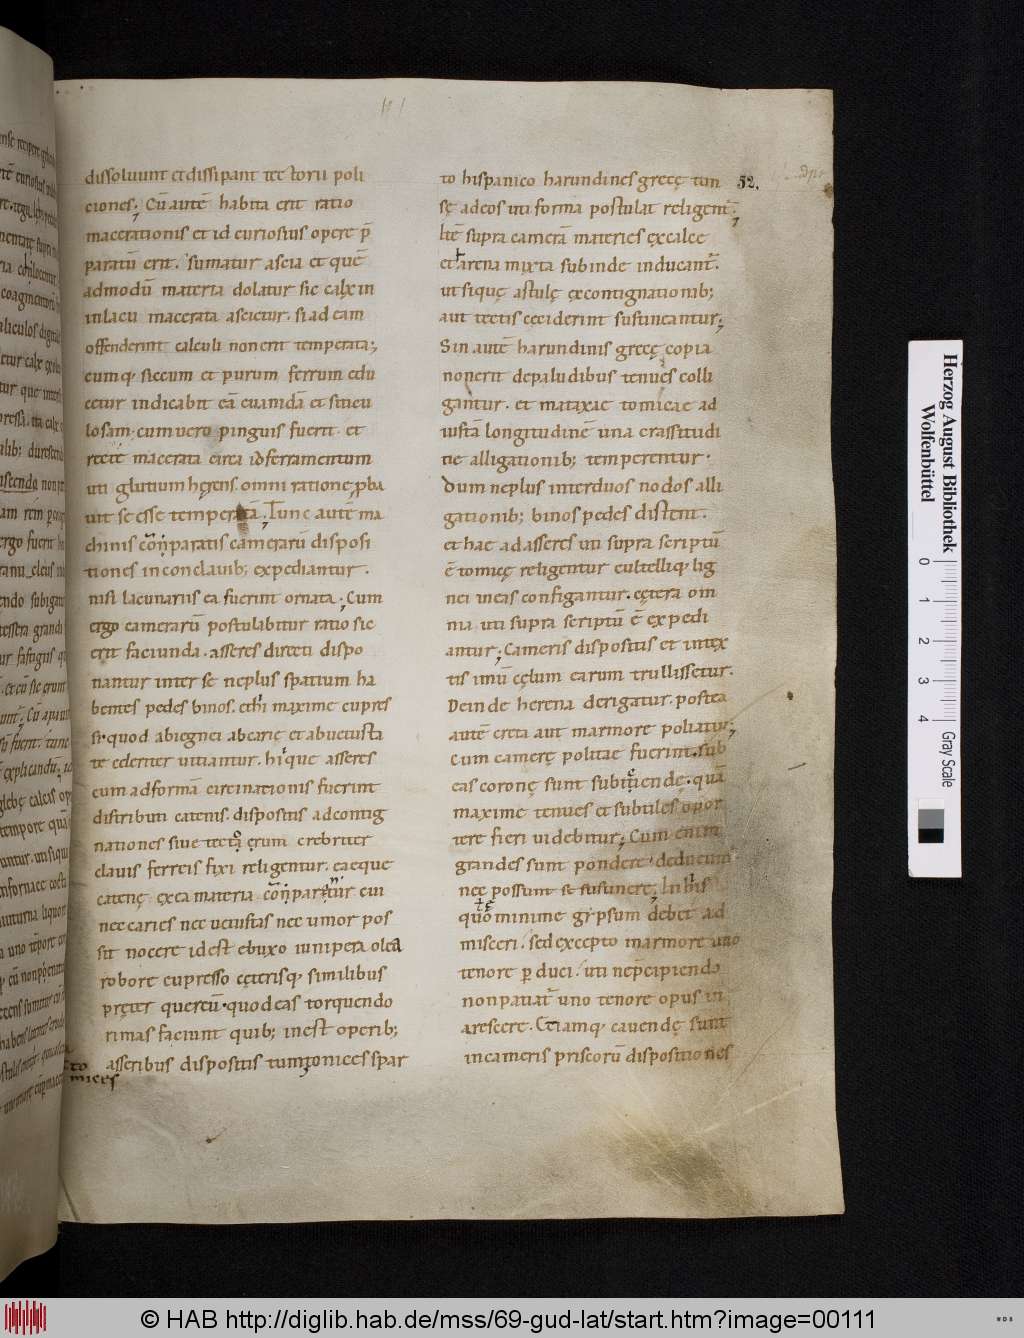 52.
dissoluunt et dissipant tectorii poli
ciones; Cū autē habita erit ratio
macerationis et id curiosius opere p̄
paratū erit. sumatur ascia et quē
admodū materia dolatur sic calx in
in lacu macerata ascietur. si ad eam
offenderint calculi non erit temperata;
cumq; siccum et purum ferrum edu
cetur indicabit eā euanidā et siticu
losam; cum uero pinguis fuerit. et
recte macerata circa id ferramentum
uti glutium hęrens. omni ratione ꝓba
uit se esse temperatā; Tunc autē ma
chinis cōparatis camerarū disposi
tiones in conclauib; expediantur.
nisi lacunariis ea fuerint ornata; Cum
ergo camerarū postulabitur ratio sic
erit faciunda. asseres directi dispo
nantur inter se ne plus spatium ha
bentes pedes binos. et hi maxime cupres
si. quod abiegnei ab carię et ab uetusta
te celeriter uitiantur. hique asseres
cum ad formā circinationis fuerint
distributi catenis. dispositis ad contig
nationes siue tectoꝝ erum crebriter
clauis ferreis fixi religentur. eaeque
catenę ex ea materia cōparentur cui
nec caries nec uetustas nec umor pos
sit nocere id est e buxo iunipera olea
robore cupresso cęterisq; similibus
pręter quercū. quod eas torquendo
rimas faciunt quib; inest operib;
asseribus dispositis tum tonices spar
to
mices
to hispanico harundines grecę tun
sę ad eos uti forma postulat religent̄;
Itē supra camerā materies ex calce
et arena mixta subinde inducant̄.
ut siquę astulę ex contignationib;
aut tectis ceciderint sustineantur;
Sin autē harundinis grecę copia
non erit de paludibus tenues colli
gantur. et mataxae tomicae ad
iustā longitudinē una crassitudi
ne alligationib; temperentur.
dum ne plus inter duos nodos alli
gationib; binos pedes distent.
et hae ad asseres uti supra scriptū
ē tomicę religentur cultelliq; lig
nei in eas configantur. cętera om
nia uti supra scriptū ē expedi
antur; Cameris dispositis et intex
tis imū cęlum earum trullissetur.
Deinde herena derigatur. postea
autē creta aut marmore poliatur;
Cum camerę politae fuerint. sub
eas coronę sunt subiciendę. quā
maxime tenues et subtiles opor
tere fieri uidebitur; Cum enim
grandes sunt pondere deducunt̄
nec possunt se sustinere; In his
quo minime gypsum debet ad
misceri. sed excepto marmore uno
tenore ꝑduci. uti ne p̄cipiendo
non patiat̄ uno tenore opus in
arescere. Etiamq; cauendę sunt
in cameris priscorū dispositiones
Herzog August Bibliothek
Wolfenbüttel
0 1 2 3 4 Gray Scale
© HAB http://diglib.hab.de/mss/69-gud-lat/start.htm?image=00111